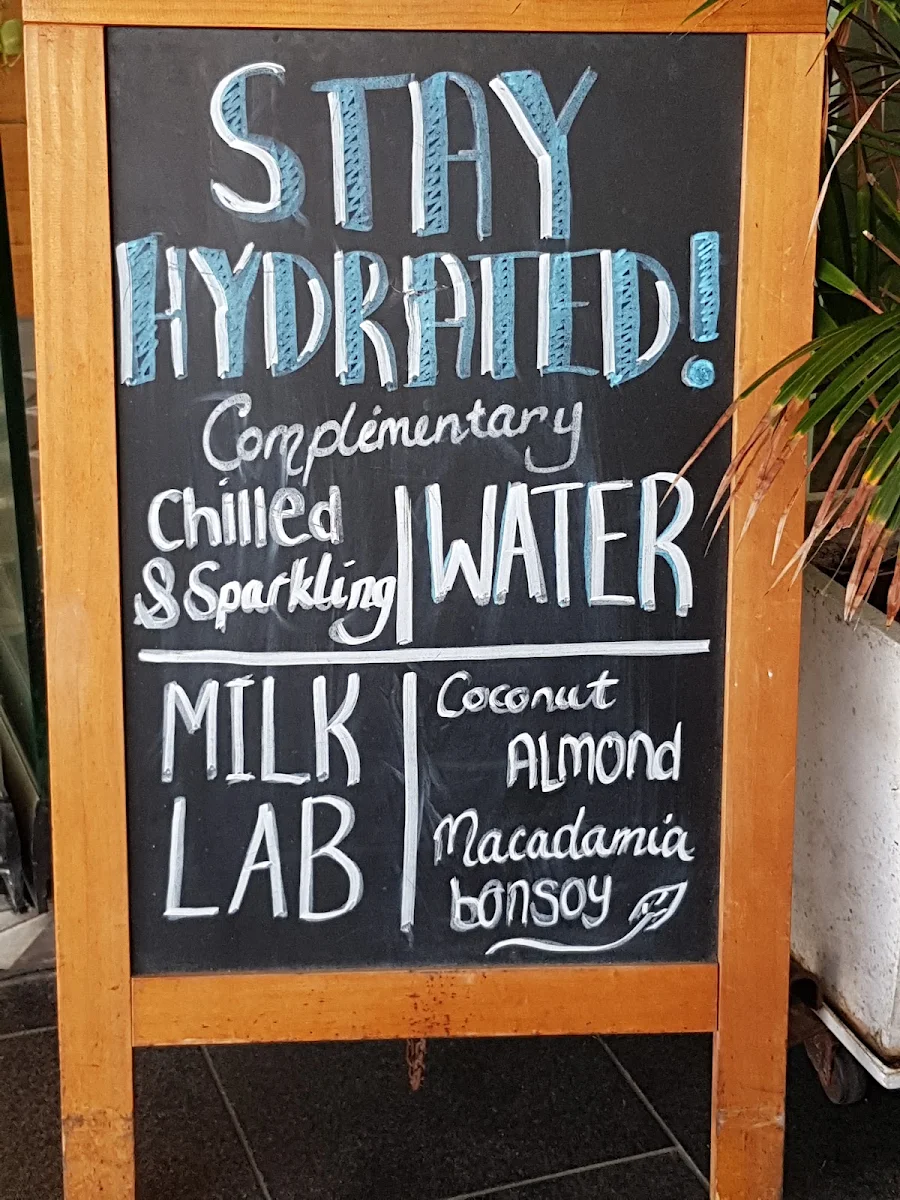 STAY
HYDRATED!
Complimentary
Chilled
& Sparkling
WATER
MILK
LAB
Coconut
ALMOND
Macadamia
bonsoy